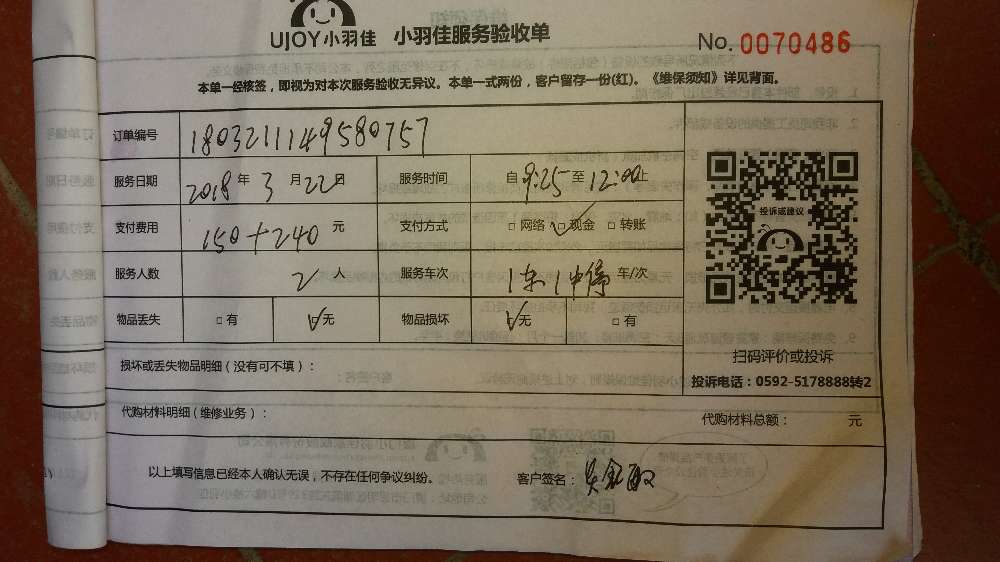 UJOY小羽佳 小羽佳服务验收单
No. 0070486
本单一经核签，即视为对本次服务验收无异议。本单一式两份，客户留存一份(红)。《维保须知》详见背面。
订单编号 1803211149580757
服务日期 2018年3月22日 服务时间 自9:25至12:00止
支付费用 150+240元 支付方式 □网络 ☑现金 □转账
服务人数 2人 服务车次 1车/次
物品丢失 □有 ☑无 物品损坏 ☑无 □有
投诉或建议
扫码评价或投诉
投诉电话：0592-5178888转2
损坏或丢失物品明细（没有可不填）：
代购材料明细（维修业务）： 代购材料总额： 元
以上填写信息已经本人确认无误，不存在任何争议纠纷。 客户签名：